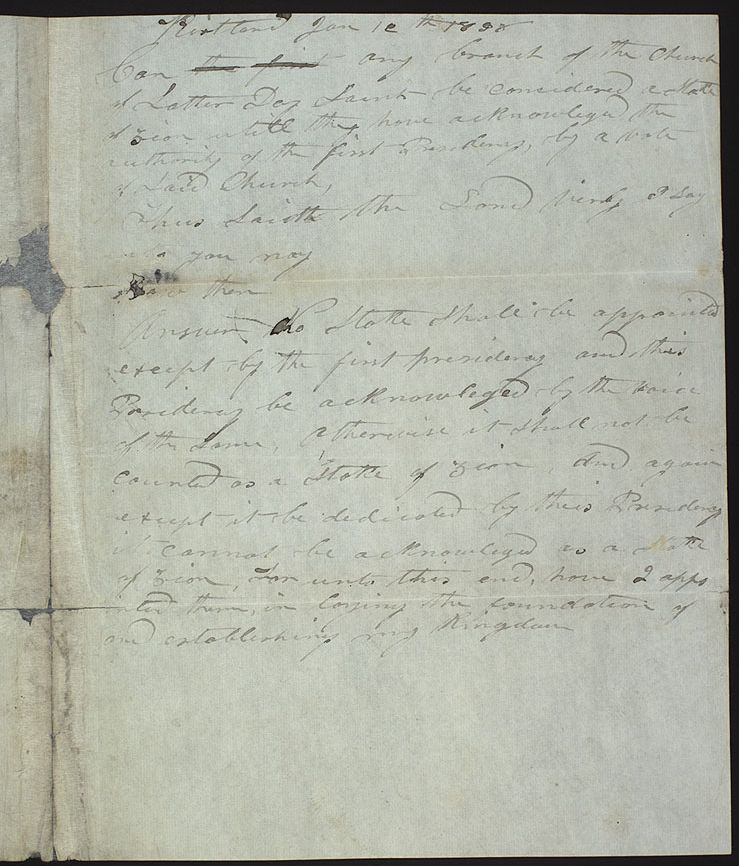 Kirtland Jan 12th 1838
Can the first any branch of the Church
of Latter Day Saints be considered a Stake
of Zion untill they have acknowleged the
authority of the first Presidency, by a vote
of Said Church,
Thus Saith the Lord verily I Say
unto you nay
then
Answer No Stake Shall be appointed
except by the first presidency and this
Presidency be acknowleged by the voice
of the Same, otherwise it shall not be
counted as a Stake of Zion, And again
except it be dedicated by this Presidency
it cannot be acknowleged as a Stake
of Zion, For unto this end, have I appo
inted them, in laying the foundation of
and establishing my Kingdom